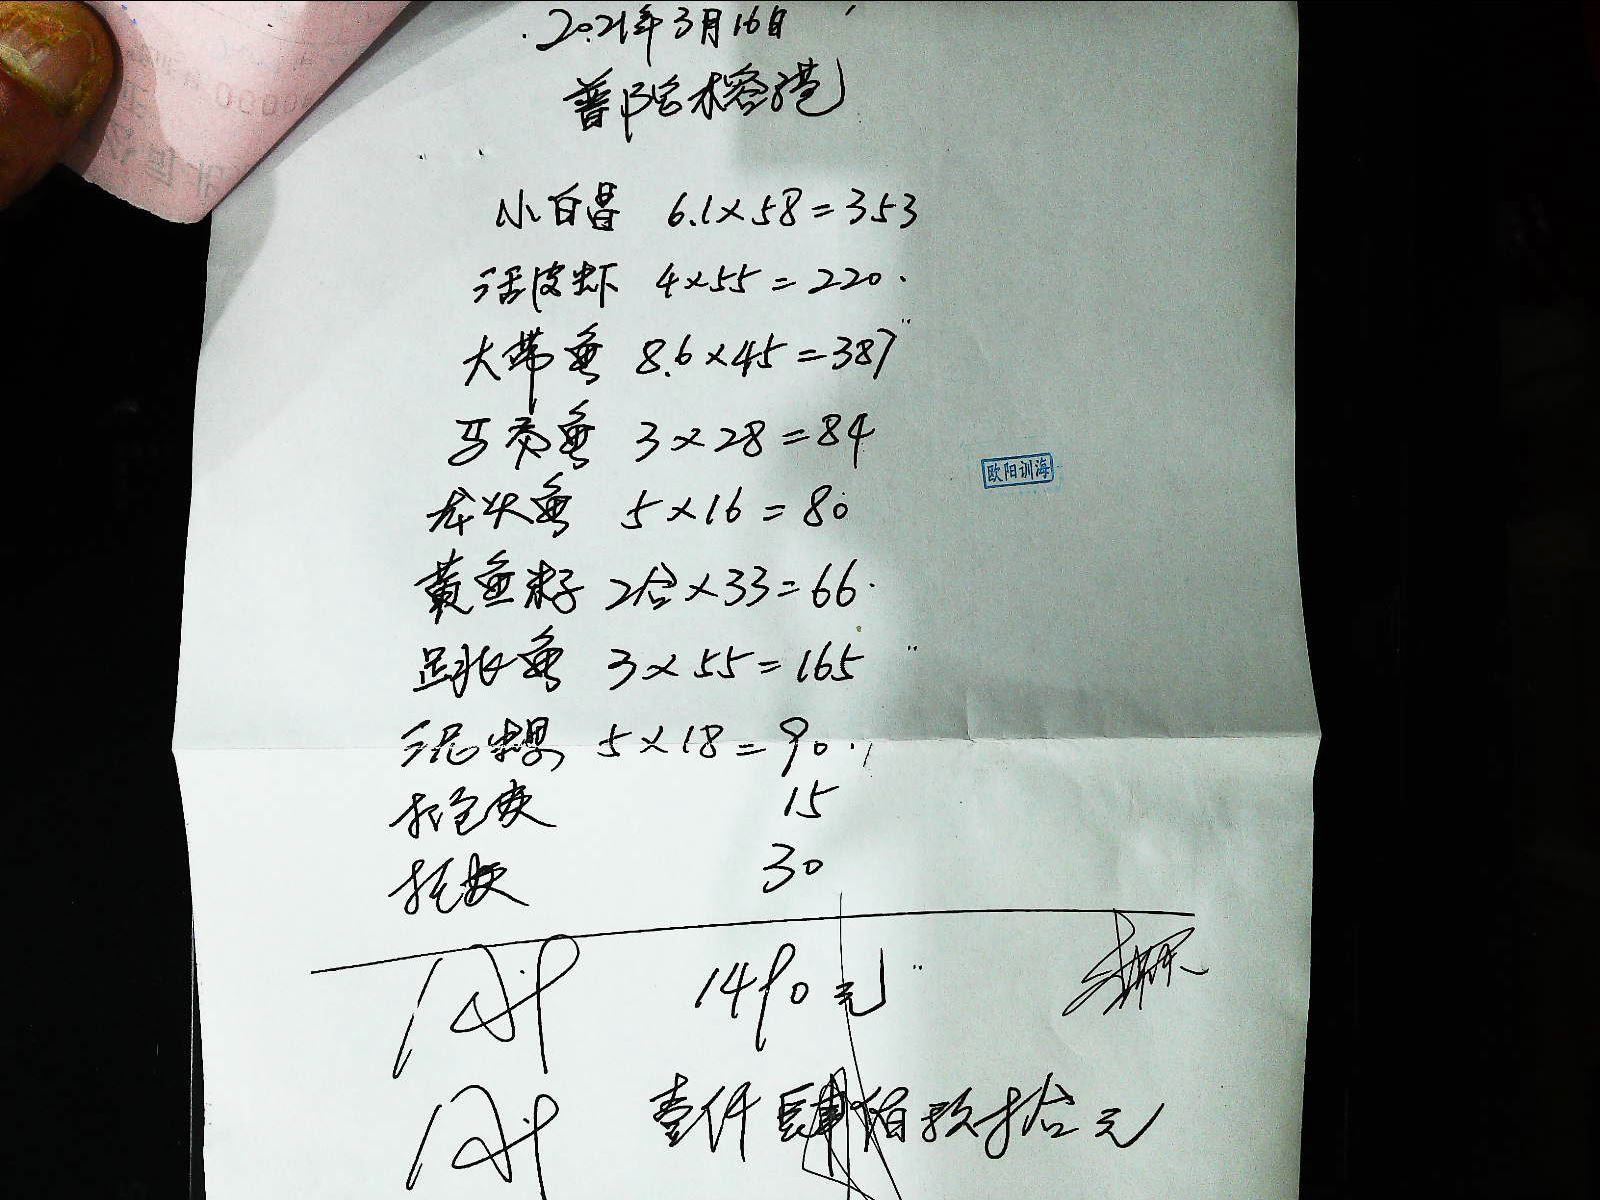 2021年3月16日
普陀榕港
小白昌 6.1×58=353
活皮虾 4×55=220.
大带鱼 8.6×45=387
马夭鱼 3×28=84
龙头鱼 5×16=80
欧阳训海
黄鱼籽 2合×33=66.
鱼 3×55=165
泥螺 5×18=90.
打包费 15
托费 30
1490元
壹仟肆佰玖拾元